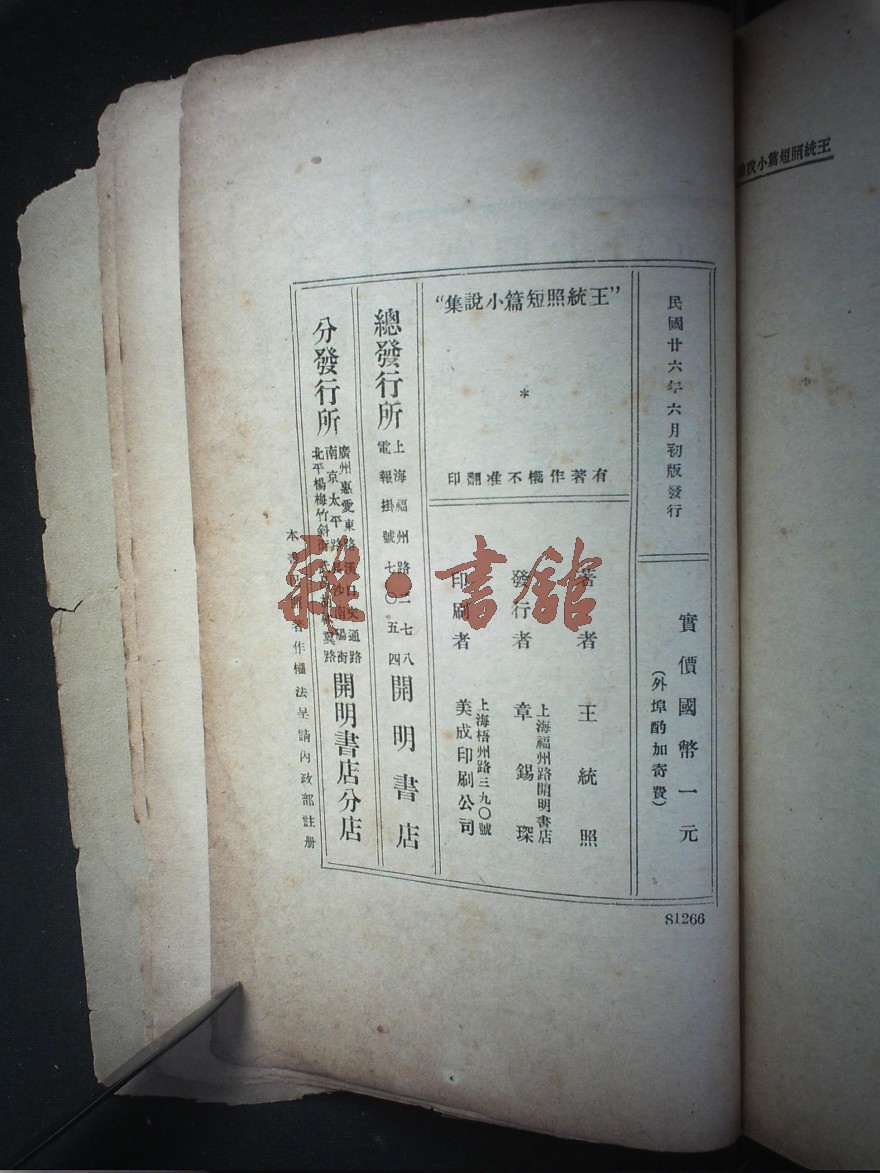 王統照短篇小說
民國廿六年六月初版發行
實價國幣一元
（外埠酌加寄費）
“王統照短篇小說集”
*
有著作權不准翻印
著者 王統照
發行者 章錫琛
上海福州路開明書店
印刷者 美成印刷公司
上海梧州路三九〇號
總發行所 上海福州路二七八 開明書店
電報掛號七〇五四
分發行所 開明書店分店
廣州惠愛東路漢口交通路
南京太平路長沙南陽街
北平楊梅竹斜街
本書 著作權 法呈請內政部註册
81266
昶·書舘